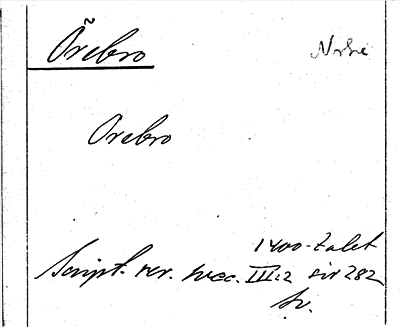 Örebro
Orebro
1400-talet
Script. rer. svec. III:2 sid 282